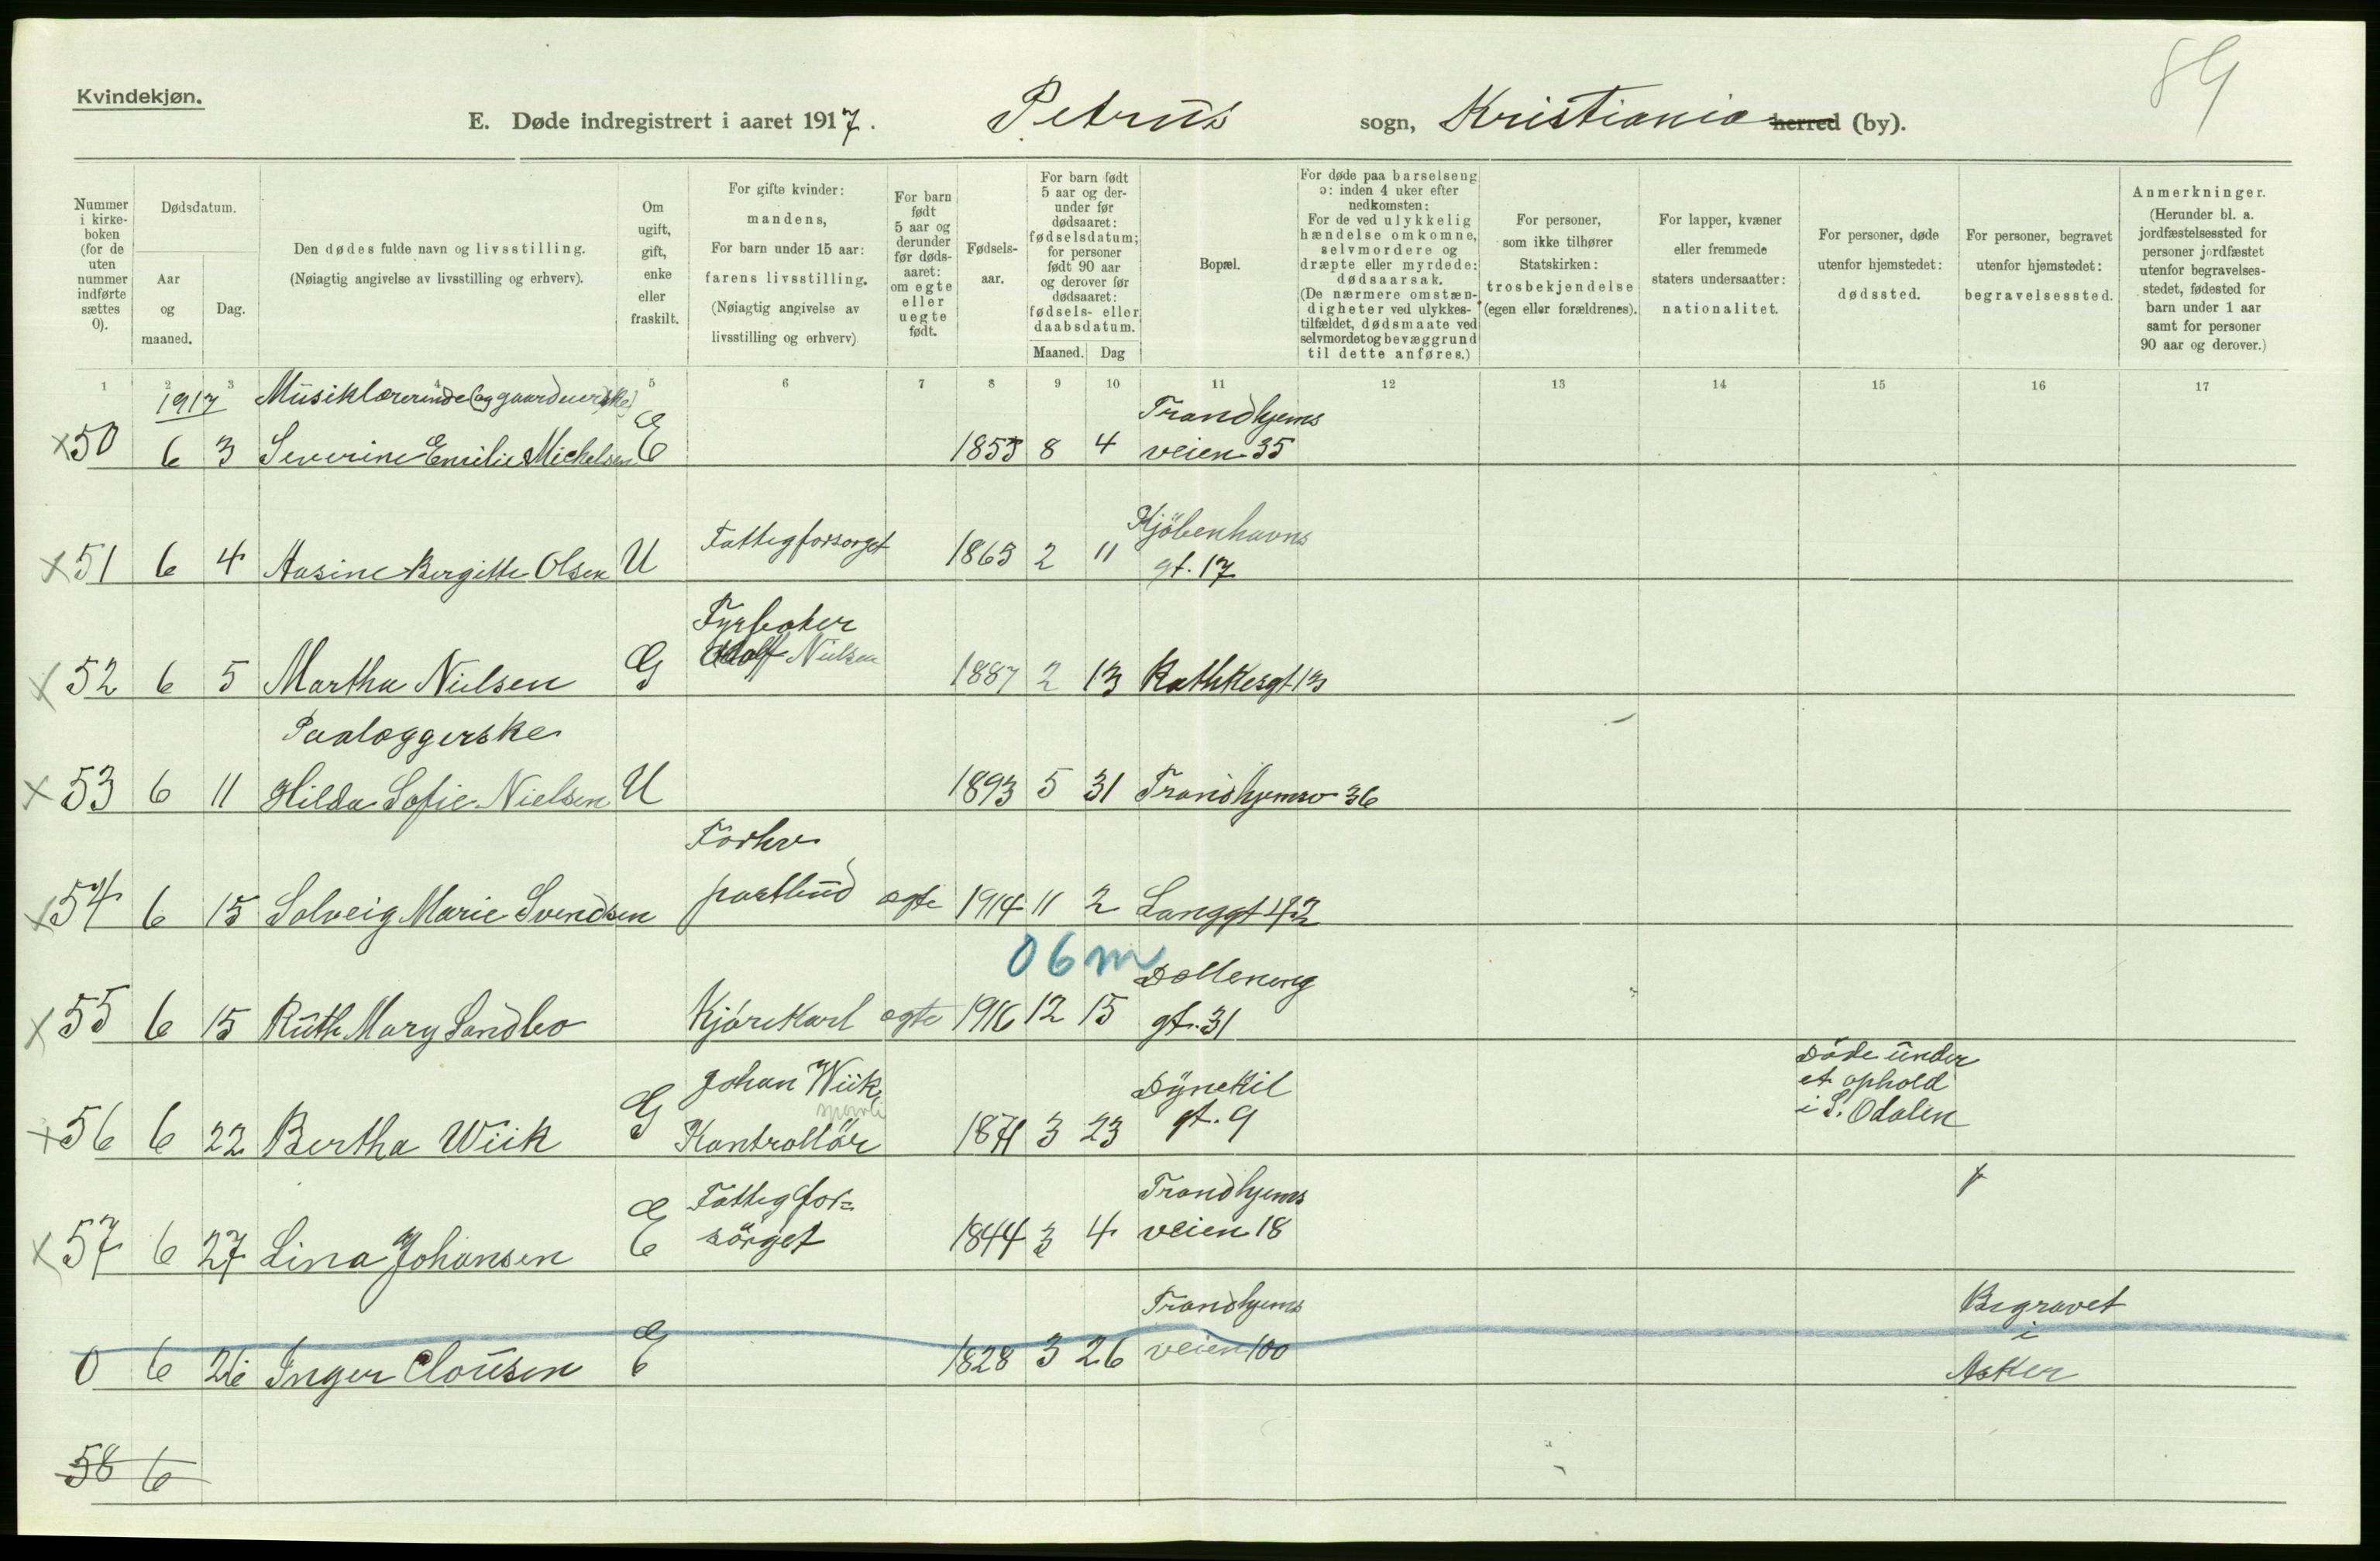 89
Kvindekjøn.
E. Døde indregistrert i aaret 1917. Petrus sogn, Kristiania herred (by).
Nummer i kirke- boken (for de uten nummer indførte sættes 0).
Dødsdatum.
Aar og maaned.
Dag.
Den dødes fulde navn og livsstilling.
(Nøiagtig angivelse av livsstilling og erhverv).
Om ugift, gift, enke eller fraskilt.
For gifte kvinder: mandens, For barn under 15 aar: farens livsstilling. (Nøiagtig angivelse av livsstilling og erhverv)
For barn født 5 aar og derunder før døds- aaret: om egte eller uegte født.
Fødsels- aar.
For barn født 5 aar og der- under før dødsaaret: fødselsdatum; for personer født 90 aar og derover før dødsaaret: fødsels- eller daabsdatum.
Maaned. Dag
Bopæl.
For døde paa barselseng ɔ: inden 4 uker efter nedkomsten: For de ved ulykkelig hændelse omkomne, selvmordere og dræpte eller myrdede: dødsaarsak. (De nærmere omstæn- digheter ved ulykkes- tilfældet, dødsmaate ved selvmordet og bevæggrund til dette anføres.)
For personer, som ikke tilhører Statskirken: trosbekjendelse (egen eller forældrenes).
For lapper, kvæner eller fremmede staters undersaatter: nationalitet.
For personer, døde utenfor hjemstedet: dødssted.
For personer, begravet utenfor hjemstedet: begravelsessted.
Anmerkninger. (Herunder bl. a. jordfæstelsessted for personer jordfæstet utenfor begravelses- stedet, fødested for barn under 1 aar samt for personer 90 aar og derover.)
1 2 3 4 5 6 7 8 9 10 11 12 13 14 15 16 17
1917 Musiklærerinde (og gaardeierske) Trondhjems
x50 6 3 Severine Emilie Michelsen E 1853 8 4 veien 35
Fattigforsorget Kjöbenhavns
x51 6 4 Aasine Bergitte Olsen U 1863 2 11 gt. 17
Fyrböter
Adolf Nielsen
x52 6 5 Martha Nielsen G 1887 2 13 Rathkesgt 13
Paalæggerske
x53 6 11 Hilda Sofie Nielsen U 1893 5 31 Trondhjemsv 36
Forhv
x54 6 15 Solveig Marie Svendsen postbud egte 1914 11 2 Langgt 42
06 m Dælleneng
x55 6 15 Ruth Mary Sandbo Kjörekarl egte 1916 12 15 gt. 31
Johan Wiik, Dynekil Döde under et ophold i S. Odalen
x56 6 22 Bertha Wiik G Kontrollör 1871 3 23 gt. 9
Fattigfor= Trondhjems
x57 6 27 Lina Johansen E sörget 1844 3 4 veien 18
Trondhjems Begravet i
0 6 26 Inger Clausen E 1828 3 26 veien 100 Asker
58 6